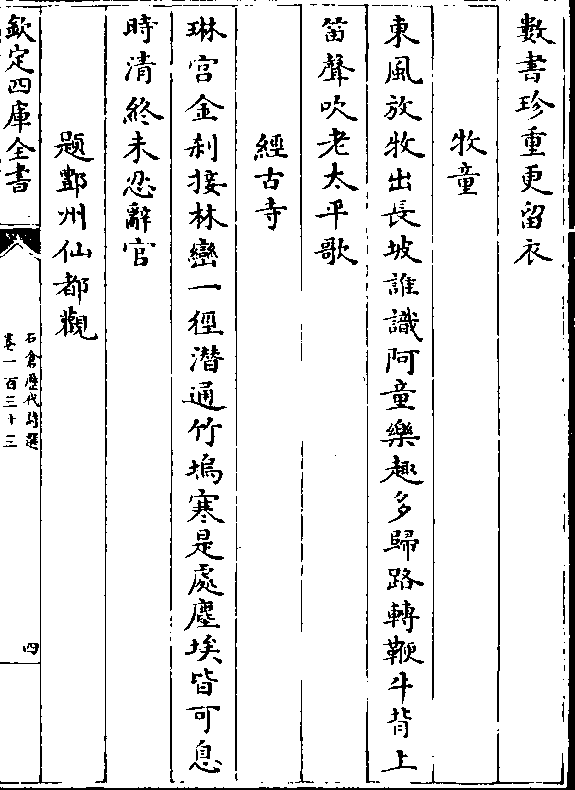 數書珍重更留衣
牧童
東風放牧出長坡誰識阿童樂趣多歸路轉鞭牛背上
笛聲吹老太平歌
經古寺
琳宫金刹接林巒一徑潛通竹塢寒是處塵埃皆可息
時清終未忍辭官
題酆州仙都觀
欽定四庫全書
石倉歷代詩選
卷一百三十三
四